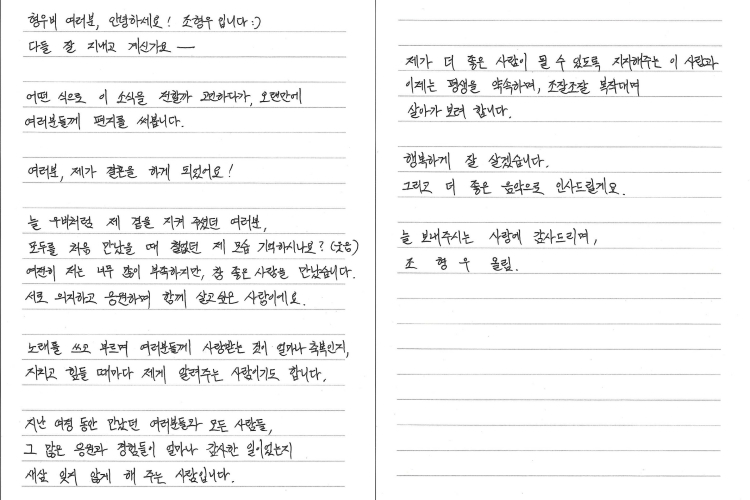 형우비 여러분, 안녕하세요! 조형우입니다 :)
다들 잘 지내고 계신가요 —
어떤 식으로 이 소식을 전할까 고민하다가, 오랜만에
여러분들께 편지를 써봅니다.
여러분, 제가 결혼을 하게 되었어요!
늘 우비처럼 제 곁을 지켜 주셨던 여러분,
모두를 처음 만났을 때 철없던 제 모습 기억하시나요? (웃음)
여전히 저는 너무 많이 부족하지만, 참 좋은 사람을 만났습니다.
서로 의지하고 응원하며 함께 살고싶은 사람이에요.
노래를 쓰고 부르며 여러분들께 사랑받는 것이 얼마나 축복인지,
지치고 힘들 때마다 제게 알려주는 사람이기도 합니다.
지난 여정 동안 만났던 여러분들과 모든 사람들,
그 많은 응원과 경험들이 얼마나 감사한 일이었는지
새삼 잊지 않게 해 주는 사람입니다.
제가 더 좋은 사람이 될 수 있도록 지지해주는 이 사람과
이제는 평생을 약속하며, 조잘조잘 복작대며
살아가 보려 합니다.
행복하게 잘 살겠습니다.
그리고 더 좋은 음악으로 인사드릴게요.
늘 보내주시는 사랑에 감사드리며,
조 형 우 올림.